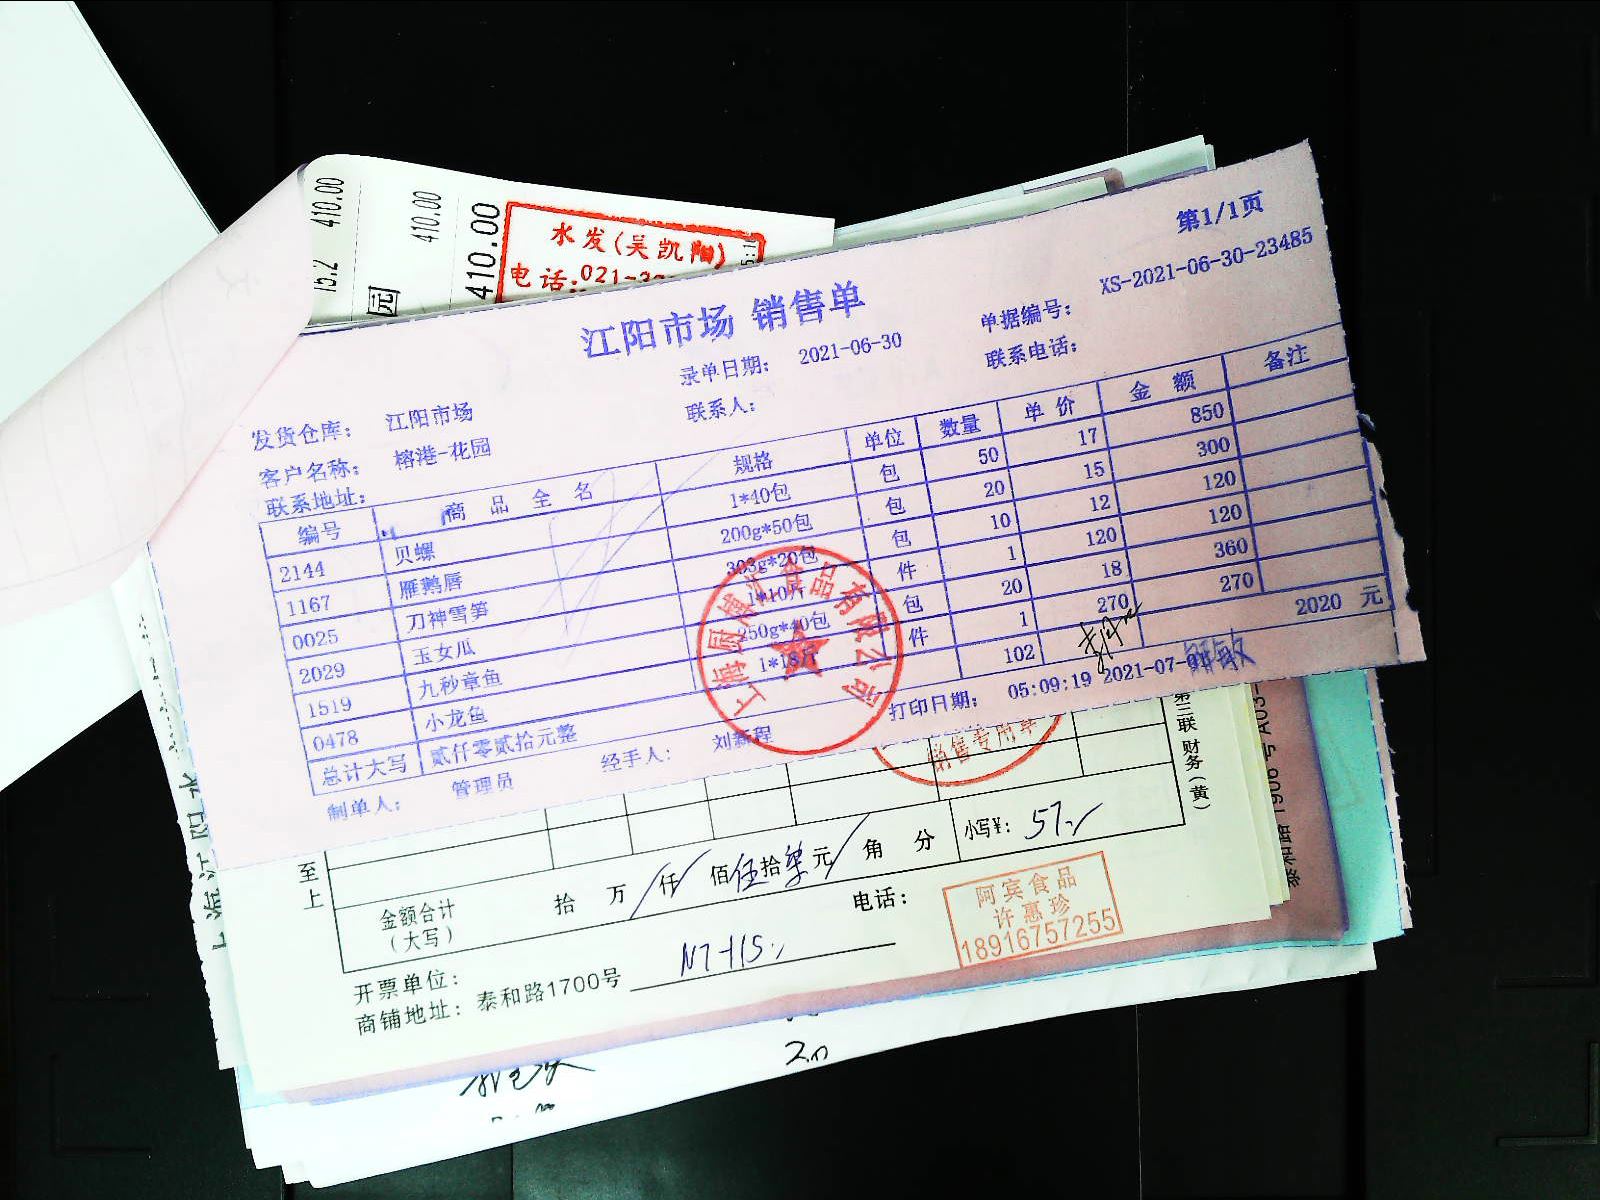 410.00
15.2
410.00
园
410.00
水发(吴凯阳)
电话:021-3
第1/1页
江阳市场 销售单
XS-2021-06-30-23485
录单日期: 2021-06-30 单据编号:
发货仓库: 江阳市场 联系人: 联系电话:
客户名称: 榕港-花园
联系地址:
编号 商品全名 规格 单位 数量 单价 金额 备注
2144 贝螺 1*40包 包 50 17 850
1167 雁鹅唇 200g*50包 包 20 15 300
0025 刀神雪笋 303g*20包 包 10 12 120
2029 玉女瓜 1*10斤 件 1 120 120
1519 九秒章鱼 250g*40包 包 20 18 360
0478 小龙鱼 1*18斤 件 1 270 270
总计大写 贰仟零贰拾元整 102 2020 元
制单人: 管理员 经手人: 刘新程 打印日期: 05:09:19 2021-07-
食品有限公司
销售专用章
第三联 财务(黄)
至
上
金额合计
(大写)
拾 万 仟 佰 伍拾 元 角 分 小写¥: 57
开票单位: 电话:
商铺地址: 泰和路1700号
阿宾食品
许惠珍
18916757255